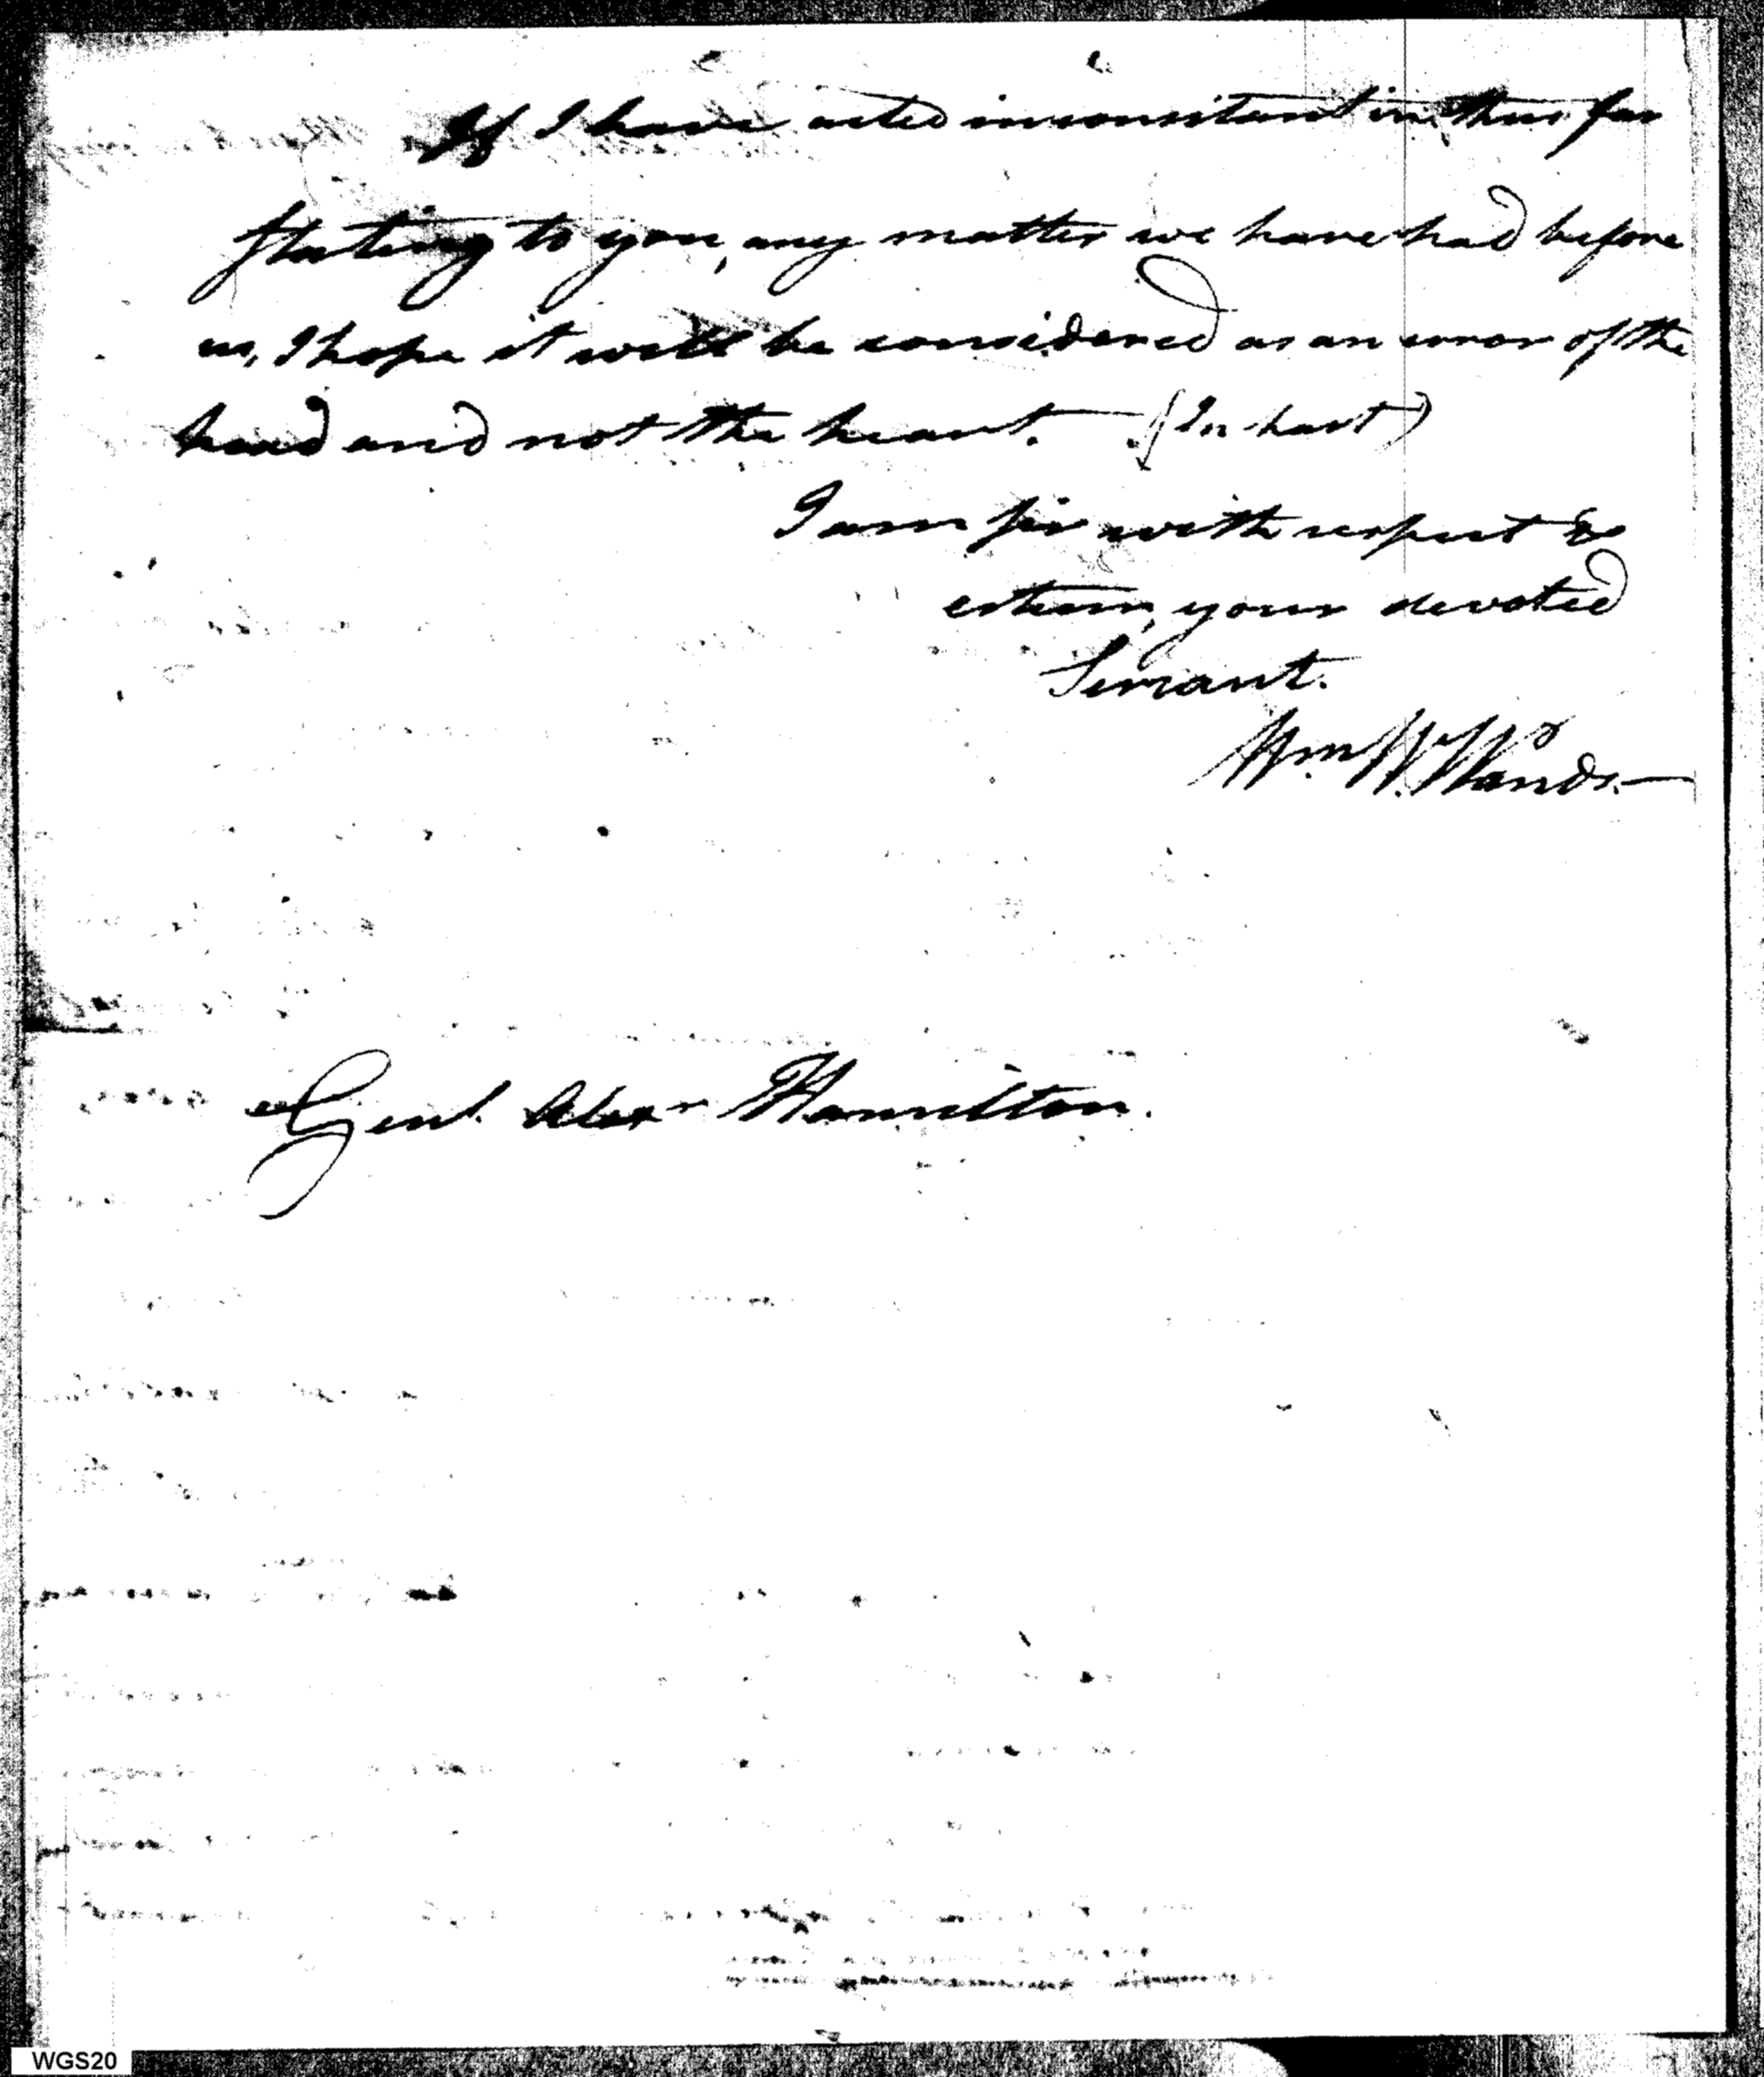 If I have acted inconsistant in thus far
stating to you, any matter we have had before
us, I hope it will be considered as an error of the
head and not the heart. (In hast)
I am sir with respect &
esteem, your devoted
Servant.
Wm W. Wands.
Genl. Alexr Hamilton.
WGS20